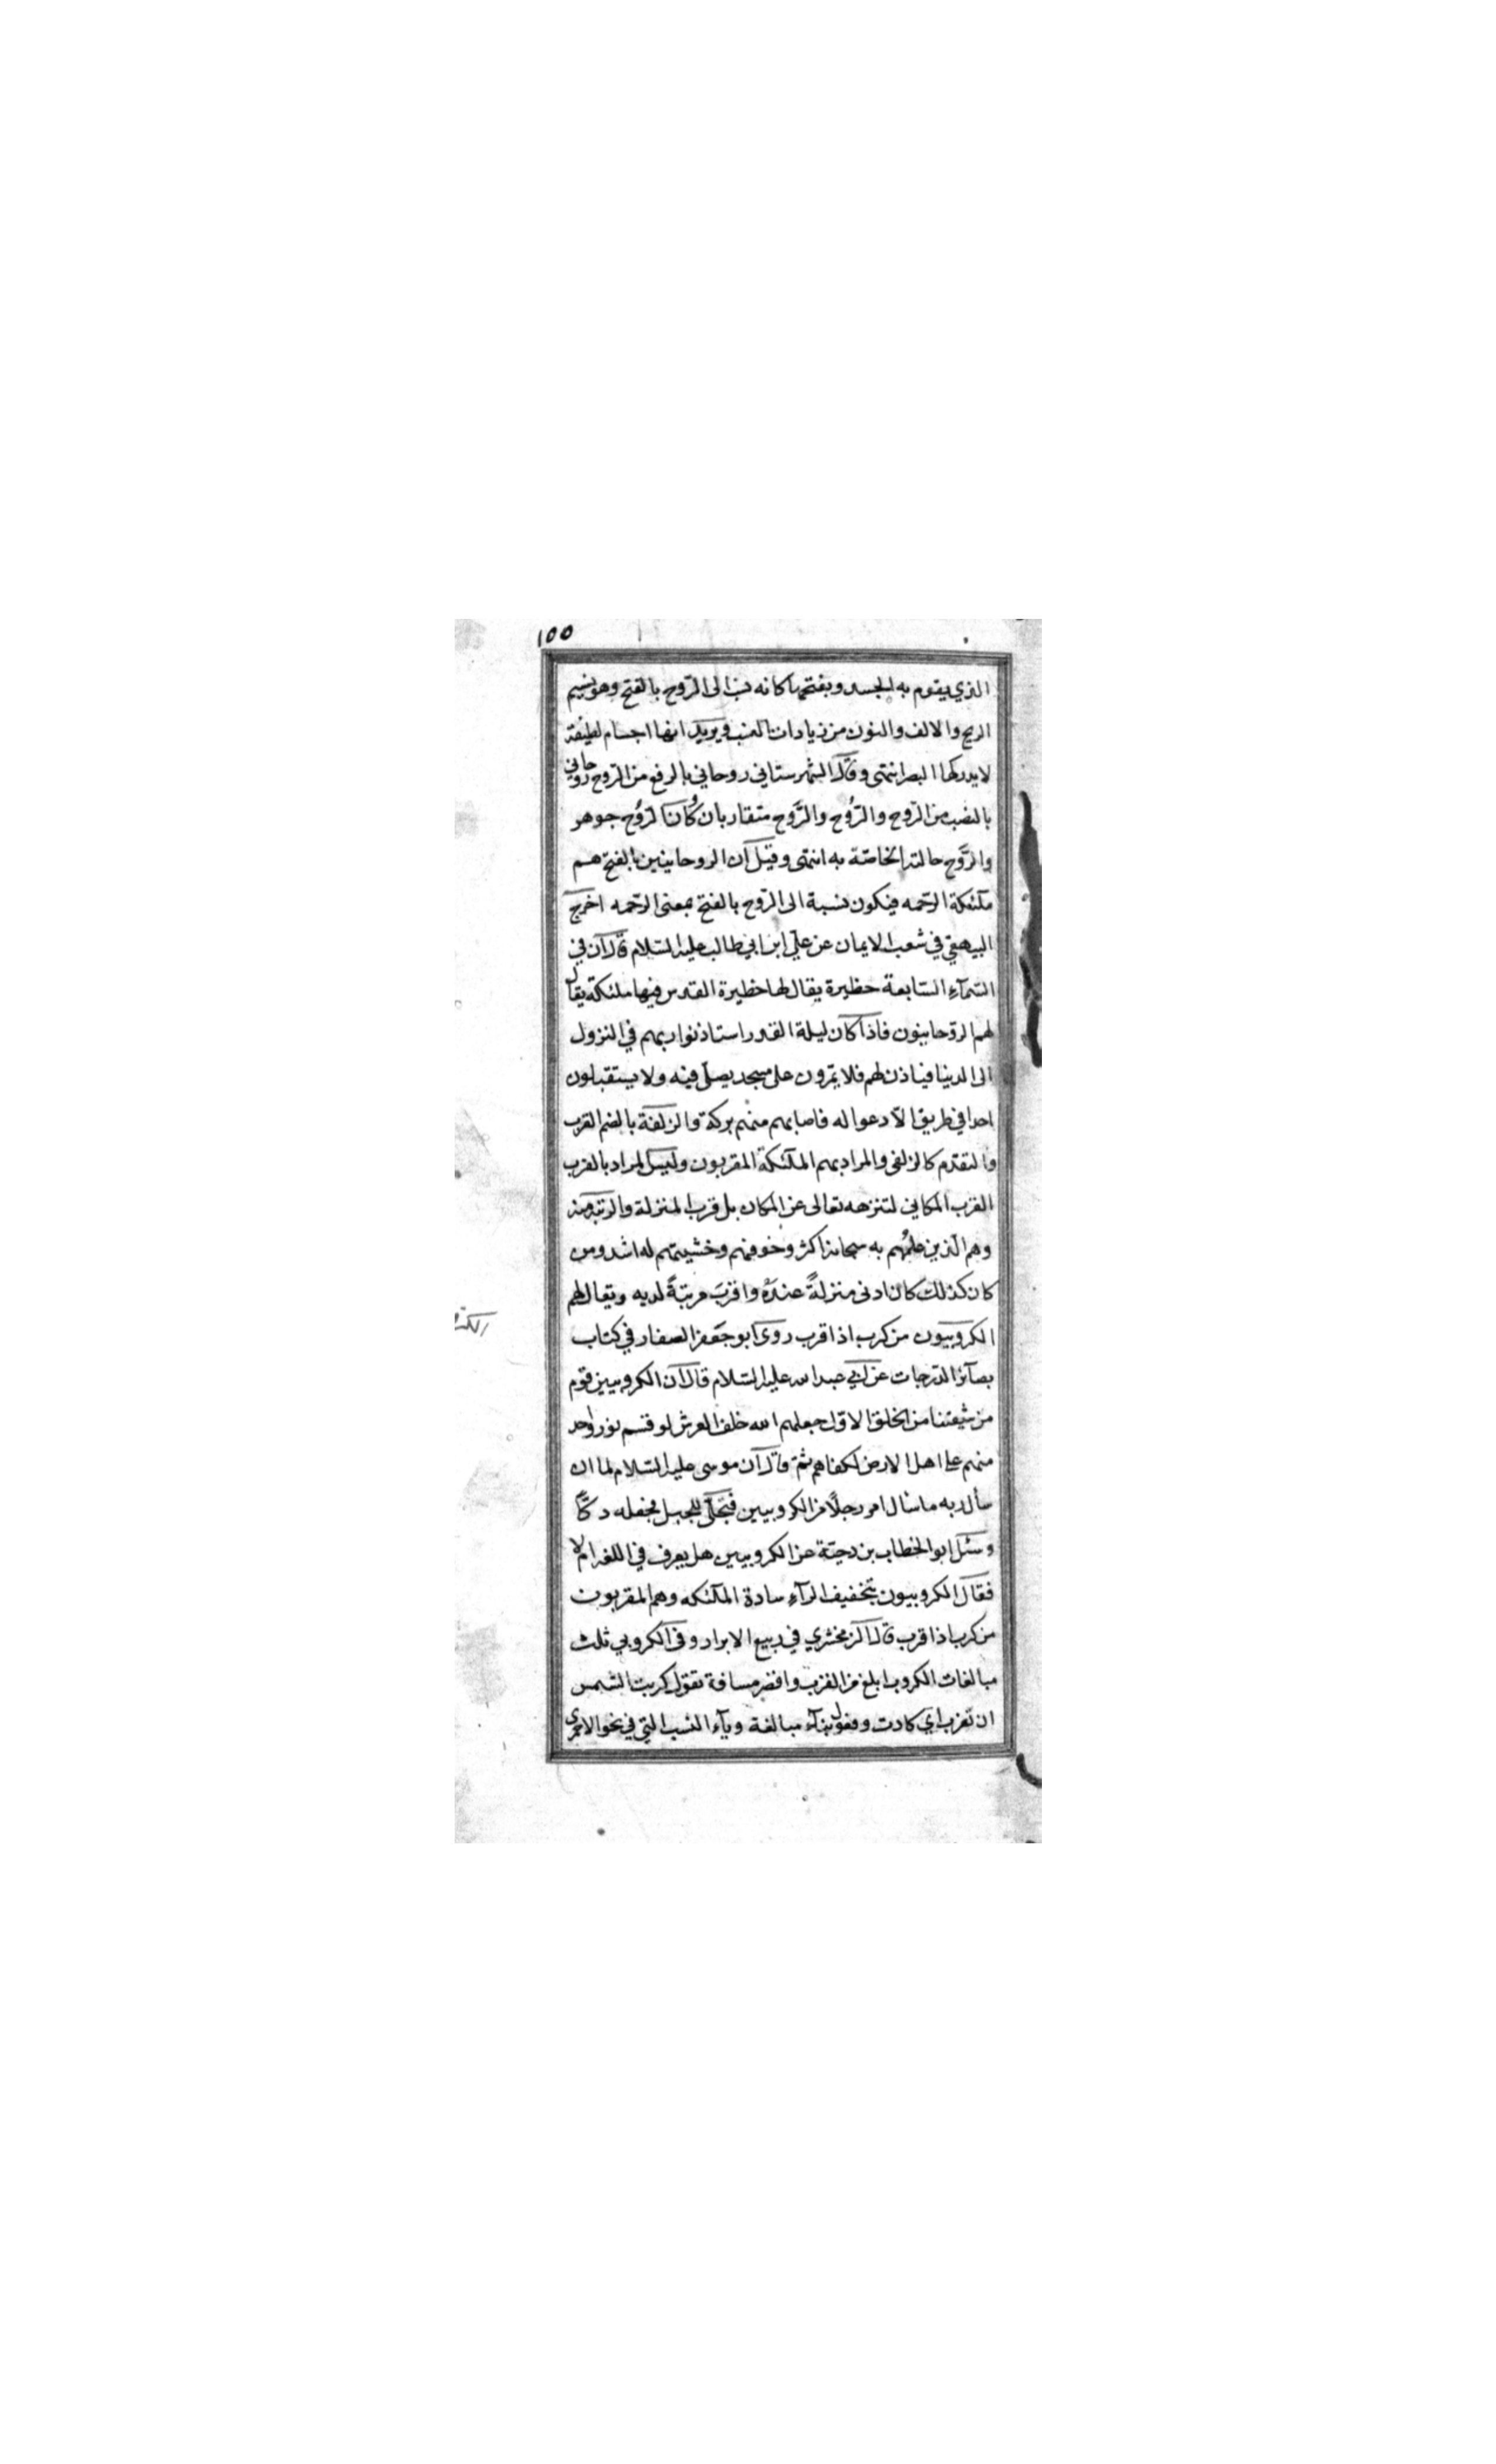 ١٥٥
الذي يقوم به الجسد وبفتحها كانه نسب الى الرّوح بالفتح وهو نسيم
الريح والالف والنون من زيادات النسب ويريد انها اجسام لطيفة
لا يدركها البصر انتهى وقال الشهرستاني روحاني بالرفع من الرّوح روحاني
بالنصب من الرّوح والرُّوح والرَّوح متقاربان وكان الرُّوح جوهر
والرَّوح حالته الخاصّة به انتهى وقيل ان الروحانيين بالفتح هم
ملآئكة الرّحمه فيكون نسبة الى الرّوح بالفتح بمعنى الرّحمه اخرج
البيهقي في شعب الايمان عن علي ابن ابي طالب عليه السّلام قال ان في
السّمآء السّابعة حظيرة يقال لها حظيرة القدس فيها ملئكة يقال
لهم الروحانيون فاذا كان ليلة القدر استاذنوا ربهم في النزول
الى الدنيا فياذن لهم فلا يمّرون على مسجد يصلّى فيه ولا يستقبلون
احدا في طريق الّا دعوا له فاصابهم منهم بركة والزلفة بالضم القرب
والتقدّم كالزلفى والمراد بهم الملآئكة المقربون وليس المراد بالقرب
القرب المكاني لتنزهه تعالى عن المكان بل قرب المنزلة والرتبة منه
وهم الّذين علمُهم به سبحانه اكثر وخوفهم وخشيتهم له اشد ومن
كان كذلك كان ادنى منزلةً عندَهُ واقربَ مرتبةً لديه ويقال لهم
الكروبيّون من كرب اذا قرب روى ابو جعفر الصفار في كتاب
بصآئر الدّرجات عن ابي عبد الله عليه السّلام قال ان الكروبيين قوم
من شيعتنا من الخلق الاوّل جعلهم الله خلف العرش لو قسم نور واحد
منهم على اهل الارض لكفاهم ثمّ قال ان موسى عليه السّلام لما ان
سأل ربه ما سأل امر رجلًا من الكروبيين فتجلّى للجبل فجعله دكًّا
وسئل ابو الخطاب بن دحيّة عن الكروبيين هل يعرف في اللغه ام لا
فقال الكروبيون بتخفيف الرآء سادة الملآئكه وهم المقربون
من كرب اذا قرب قال الزمخشري في ربيع الابرار وفى الكروبي ثلث
مبالغات الكروب ابلغ من القرب واقصر مسافة تقول كربت الشمس
ان تغرب اي كادت وفعول بنآء مبالغة ويآء النسب التي في نحو الاحمري